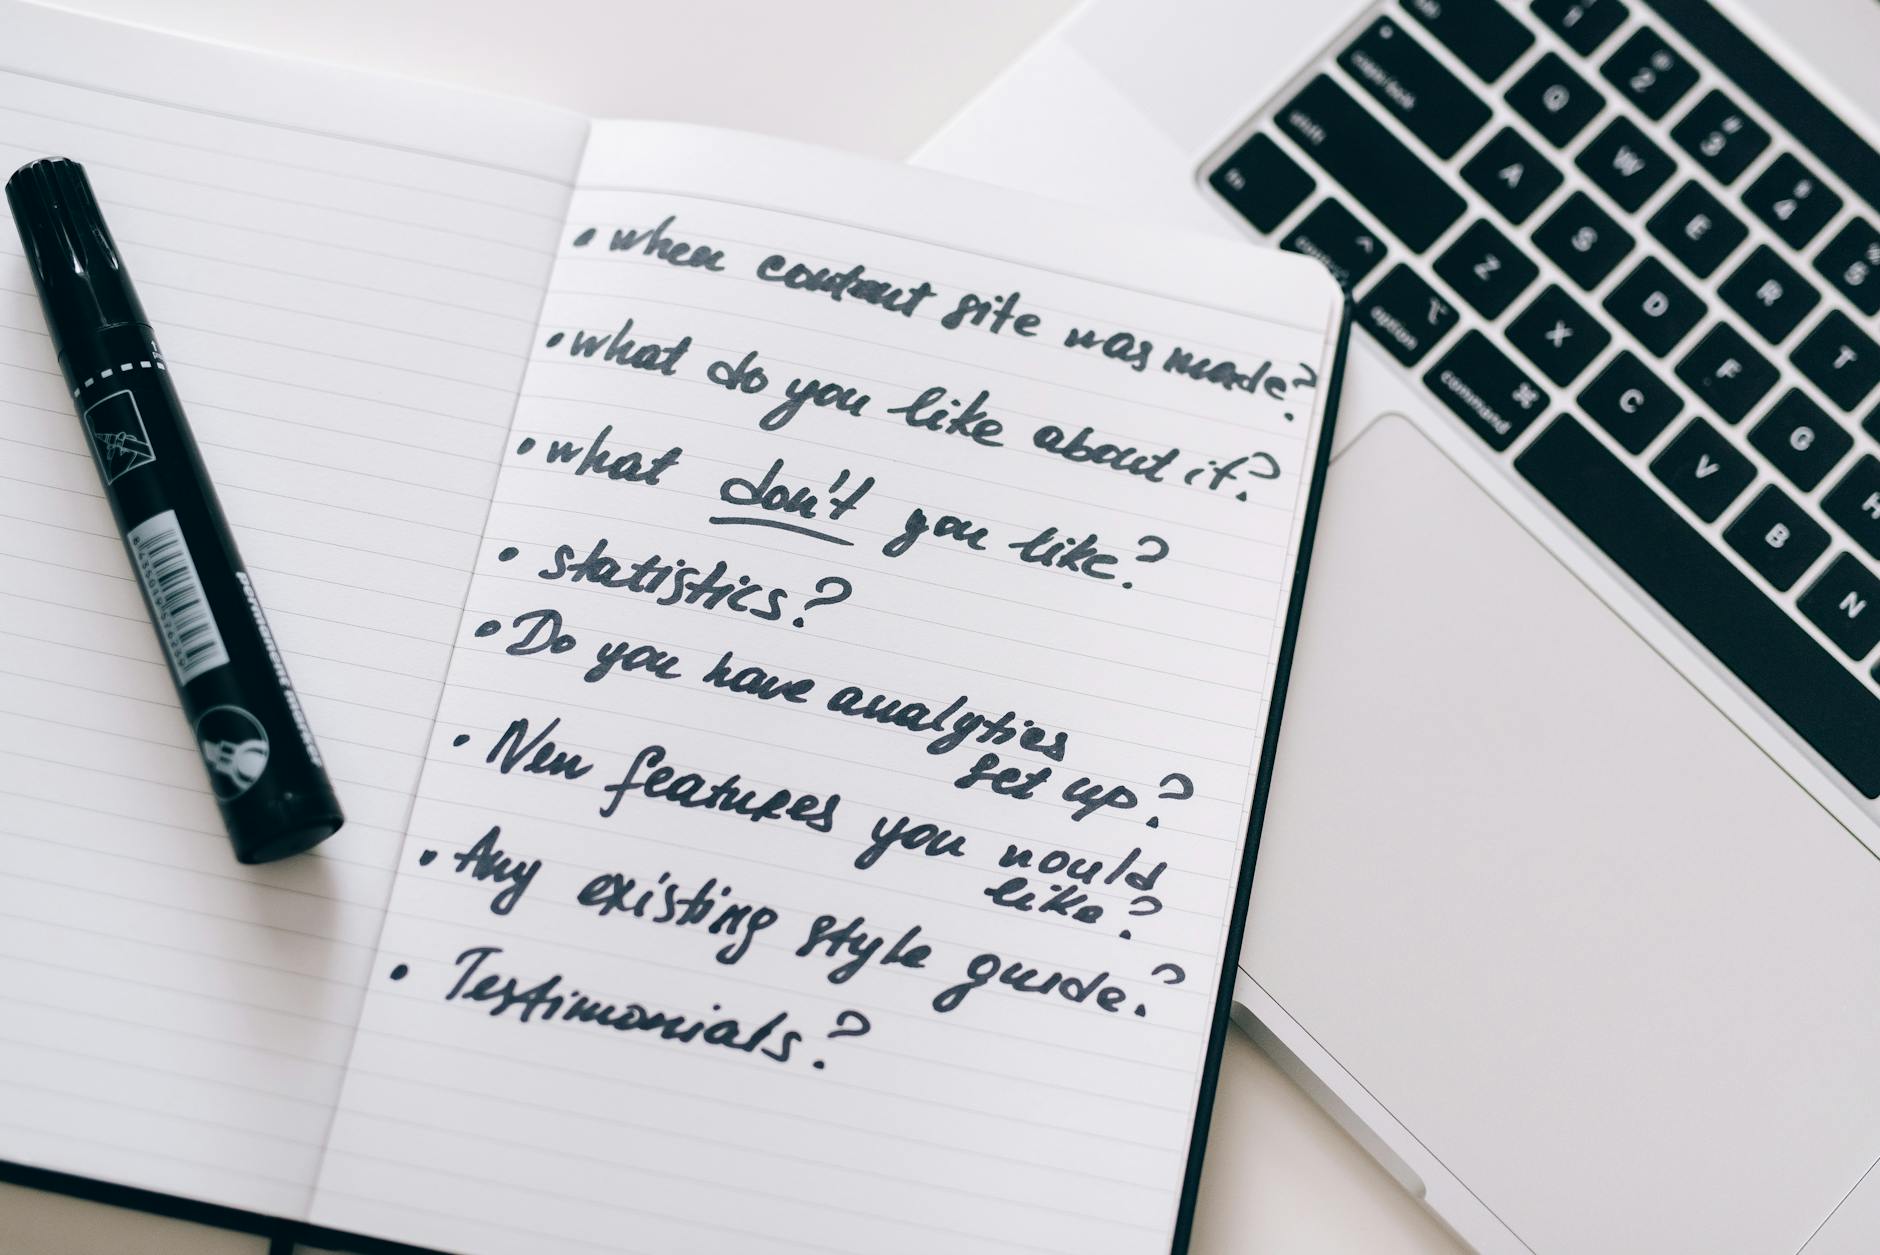 • when content site was made?
• what do you like about it?
• what don't you like?
• statistics?
• Do you have analytics
set up?
• New features you would
like?
• Any existing style guide?
• Testimonials?
Permanent marker
1 @ 2 # 3 $ 4 % 5
Q W E R T
caps lock A S D F G H
shift Z X C V B N
fn control option ⌥ command ⌘